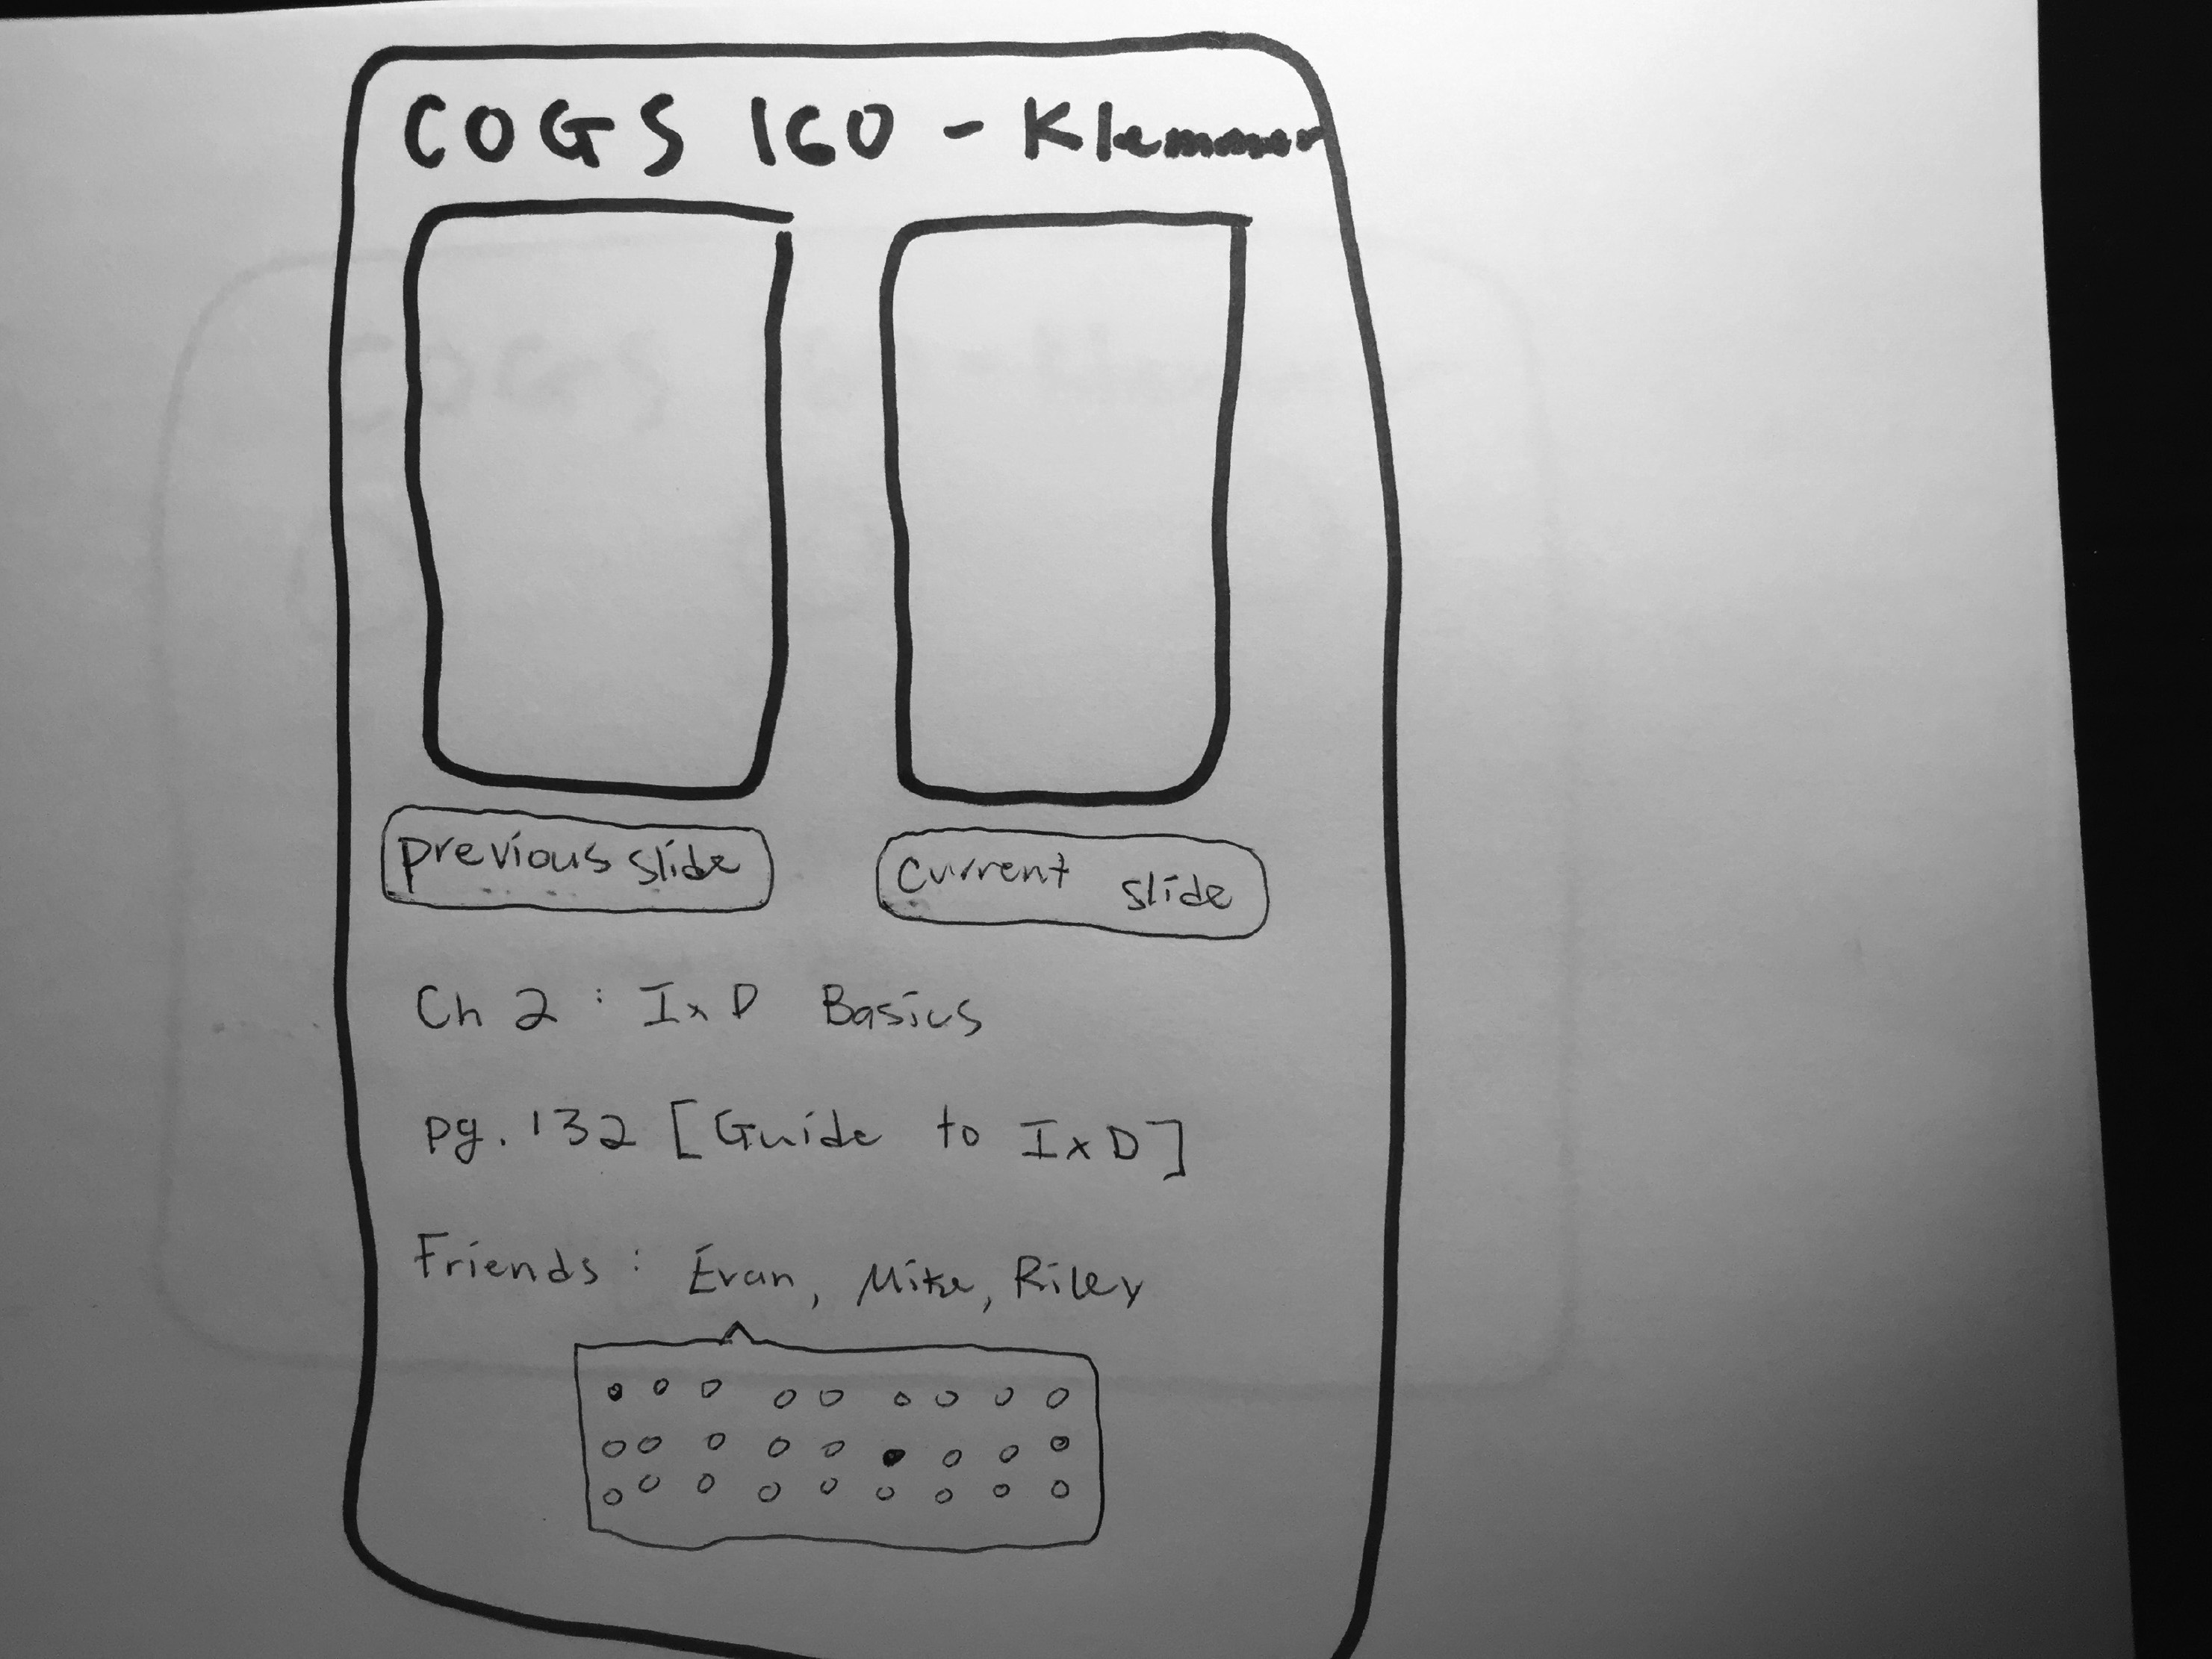 COGS 160 - Klemmer
previous slide
current slide
Ch 2 : IxD Basics
pg. 132 [Guide to IxD]
Friends : Evan, Mike, Riley